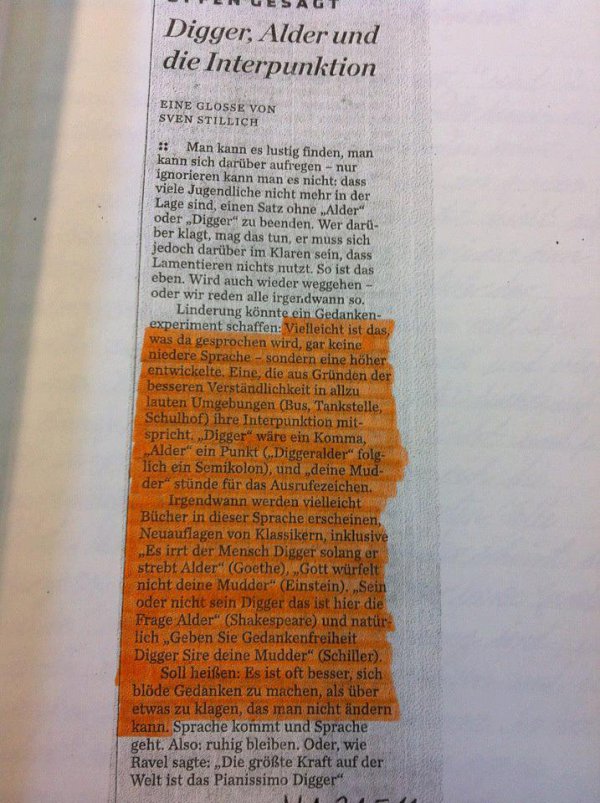 OFFEN GESAGT
Digger, Alder und
die Interpunktion
EINE GLOSSE VON
SVEN STILLICH
Man kann es lustig finden, man
kann sich darüber aufregen – nur
ignorieren kann man es nicht: dass
viele Jugendliche nicht mehr in der
Lage sind, einen Satz ohne „Alder“
oder „Digger“ zu beenden. Wer darü-
ber klagt, mag das tun, er muss sich
jedoch darüber im Klaren sein, dass
Lamentieren nichts nutzt. So ist das
eben. Wird auch wieder weggehen –
oder wir reden alle irgendwann so.
Linderung könnte ein Gedanken-
experiment schaffen: Vielleicht ist das,
was da gesprochen wird, gar keine
niedere Sprache – sondern eine höher
entwickelte. Eine, die aus Gründen der
besseren Verständlichkeit in allzu
lauten Umgebungen (Bus, Tankstelle,
Schulhof) ihre Interpunktion mit-
spricht. „Digger“ wäre ein Komma,
„Alder“ ein Punkt („Diggeralder“ folg-
lich ein Semikolon), und „deine Mud-
der“ stünde für das Ausrufezeichen.
Irgendwann werden vielleicht
Bücher in dieser Sprache erscheinen,
Neuauflagen von Klassikern, inklusive
„Es irrt der Mensch Digger solang er
strebt Alder“ (Goethe), „Gott würfelt
nicht deine Mudder“ (Einstein), „Sein
oder nicht sein Digger das ist hier die
Frage Alder“ (Shakespeare) und natür-
lich „Geben Sie Gedankenfreiheit
Digger Sire deine Mudder“ (Schiller).
Soll heißen: Es ist oft besser, sich
blöde Gedanken zu machen, als über
etwas zu klagen, das man nicht ändern
kann. Sprache kommt und Sprache
geht. Also: ruhig bleiben. Oder, wie
Ravel sagte: „Die größte Kraft auf der
Welt ist das Pianissimo Digger“